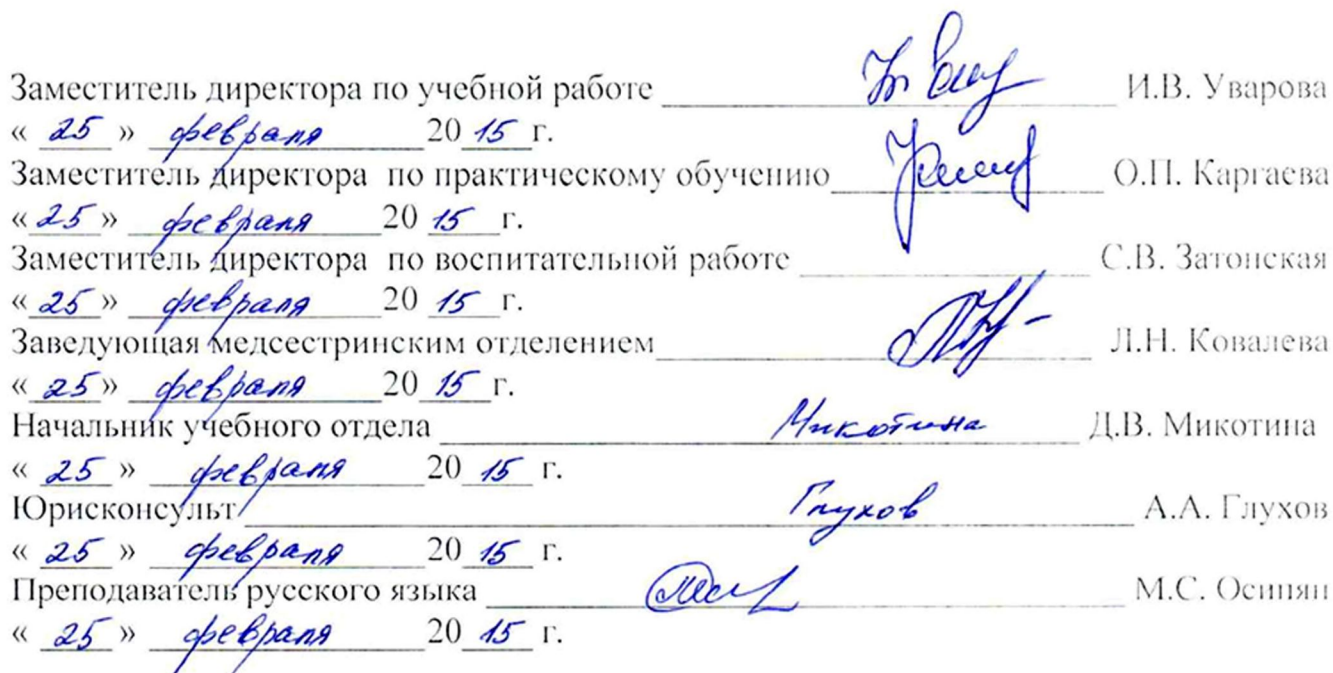 Заместитель директора по учебной работе И.В. Уварова
« 25 » февраля 20 15 г.
Заместитель директора по практическому обучению О.П. Каргаева
« 25 » февраля 20 15 г.
Заместитель директора по воспитательной работе С.В. Затонская
« 25 » февраля 20 15 г.
Заведующая медсестринским отделением Л.Н. Ковалева
« 25 » февраля 20 15 г.
Начальник учебного отдела Микотина Д.В. Микотина
« 25 » февраля 20 15 г.
Юрисконсульт Глухов А.А. Глухов
« 25 » февраля 20 15 г.
Преподаватель русского языка М.С. Осипян
« 25 » февраля 20 15 г.